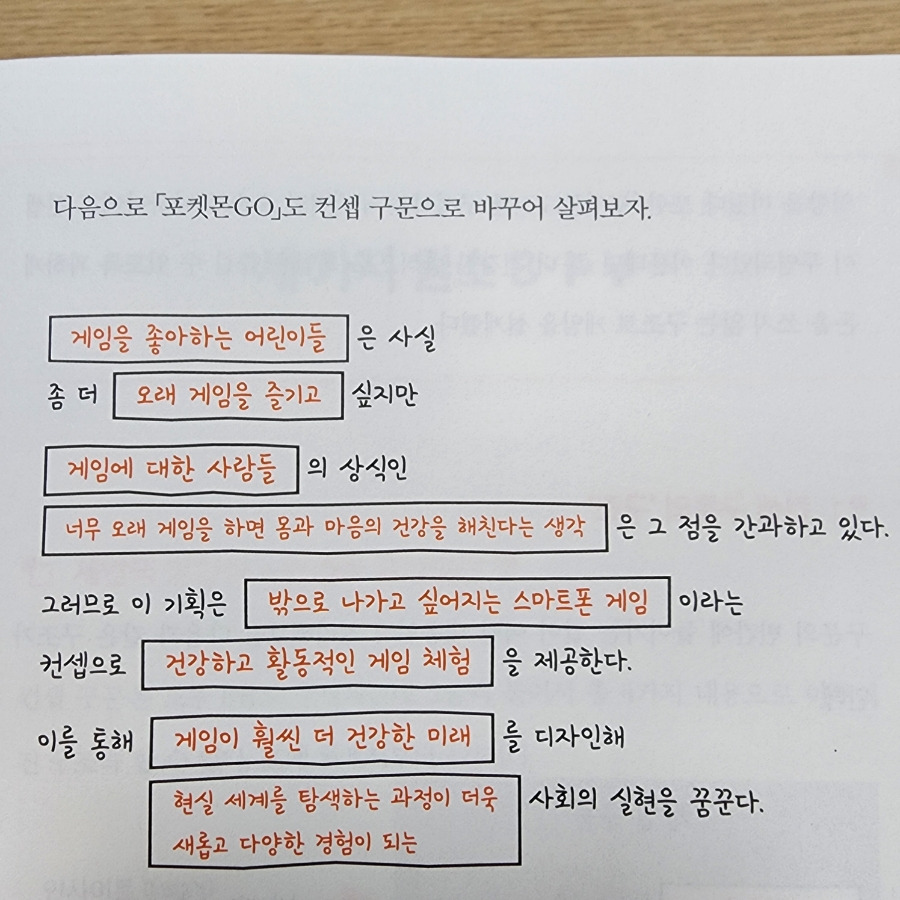 다음으로 「포켓몬GO」도 컨셉 구문으로 바꾸어 살펴보자.
게임을 좋아하는 어린이들 은 사실
좀 더 오래 게임을 즐기고 싶지만
게임에 대한 사람들 의 상식인
너무 오래 게임을 하면 몸과 마음의 건강을 해친다는 생각 은 그 점을 간과하고 있다.
그러므로 이 기획은 밖으로 나가고 싶어지는 스마트폰 게임 이라는
컨셉으로 건강하고 활동적인 게임 체험 을 제공한다.
이를 통해 게임이 훨씬 더 건강한 미래 를 디자인해
현실 세계를 탐색하는 과정이 더욱 사회의 실현을 꿈꾼다.
새롭고 다양한 경험이 되는